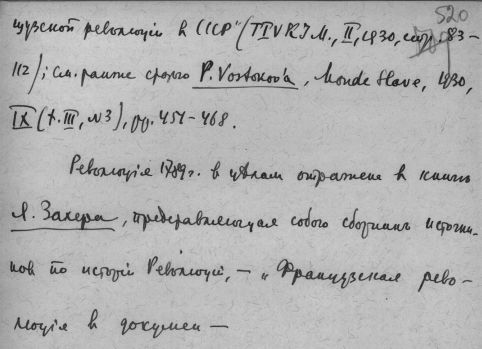 520
цузской революціи в СССР" (TTVRIM., II, 1930, стр. 83-
112); см. также статью P. Vostokov'a, Monde Slave, 1930,
IX (t. III, N3), pp. 451-468.
Революція 1789 г. в цѣлом отражена в книгѣ
Я. Захера, представляющая собою сборникъ источни-
ков по исторіи Революціи, — „Французская рево-
люція в докумен-